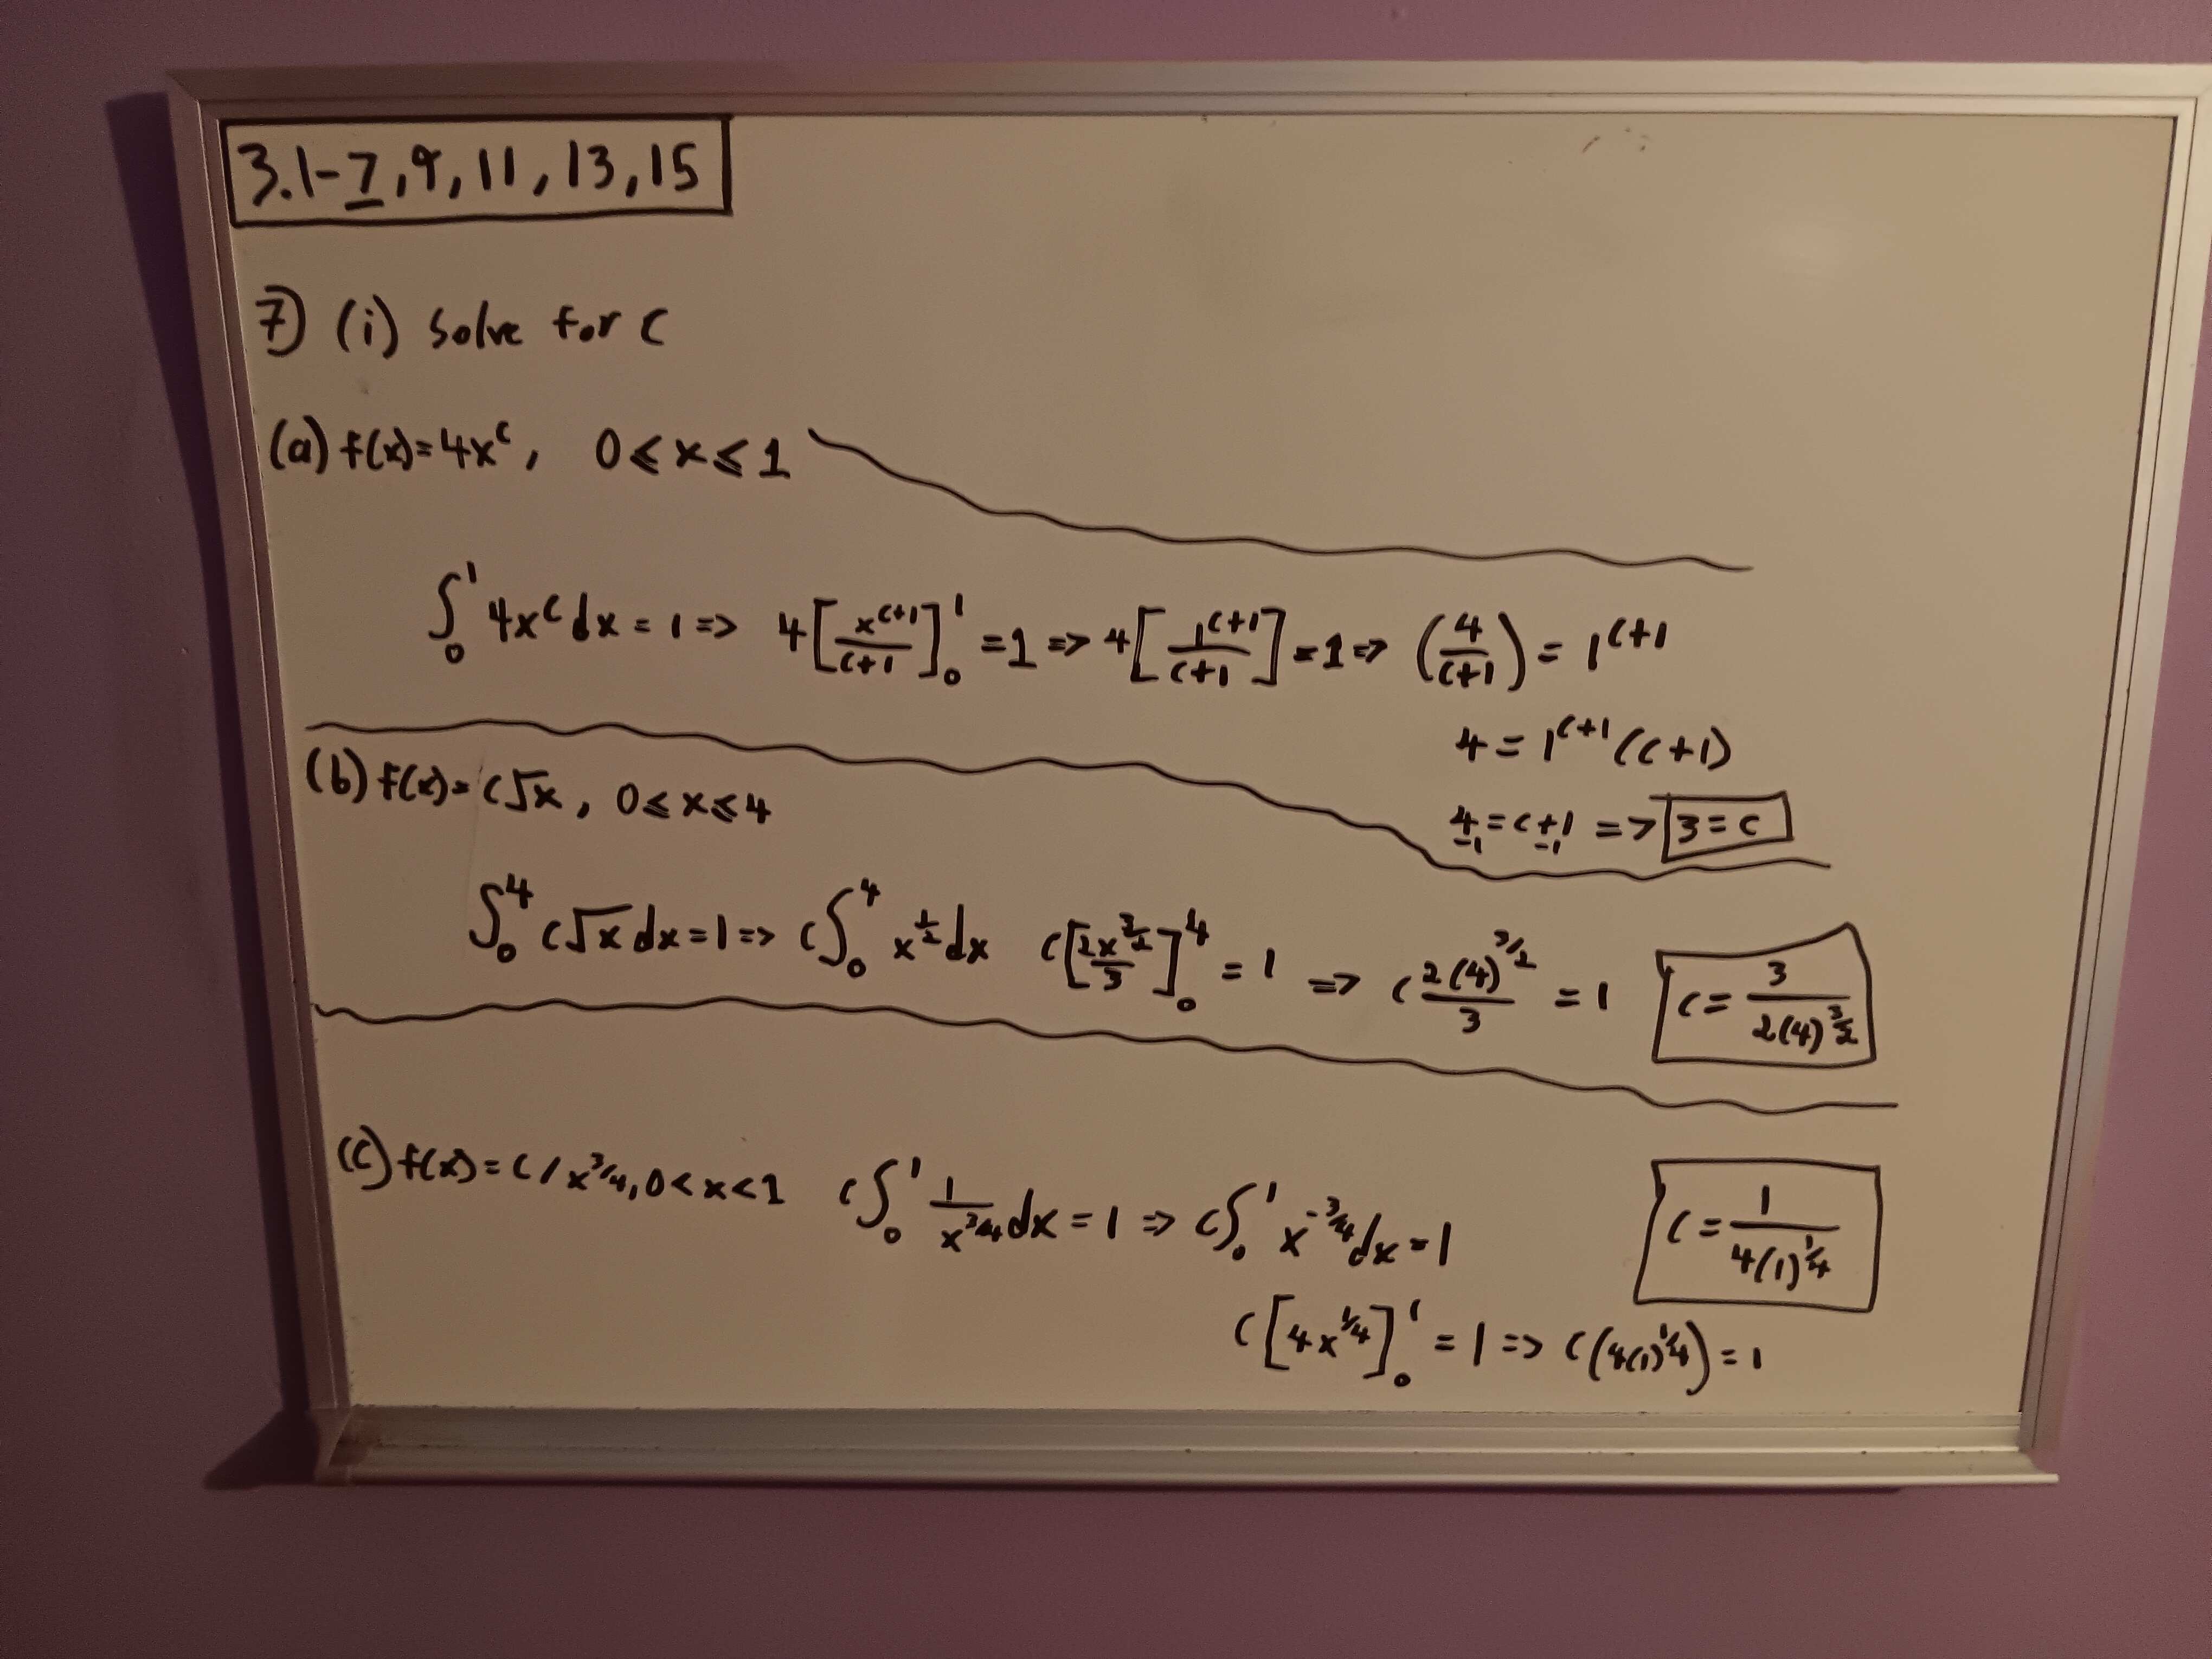 3.1-7,9,11,13,15
7) (i) Solve for c
(a) f(x)=4x^c, 0≤x≤1
∫_0^1 4x^c dx = 1 => 4[x^(c+1)/(c+1)]_0^1 = 1 => 4[1^(c+1)/(c+1)] = 1 => (4/(c+1)) = 1^(c+1)
4 = 1^(c+1) (c+1)
4 = c+1 => 3 = c
-1 -1
(b) f(x)= c√x, 0≤x≤4
∫_0^4 c√x dx = 1 => c∫_0^4 x^(1/2) dx c[2x^(3/2)/3]_0^4 = 1 => c 2(4)^(3/2)/3 = 1 c = 3/(2(4)^(3/2))
(c) f(x) = c/x^(3/4), 0<x<1 c∫_0^1 1/x^(3/4) dx = 1 => c∫_0^1 x^(-3/4) dx = 1 c = 1/(4(1)^(1/4))
c[4x^(1/4)]_0^1 = 1 => c(4(1)^(1/4)) = 1